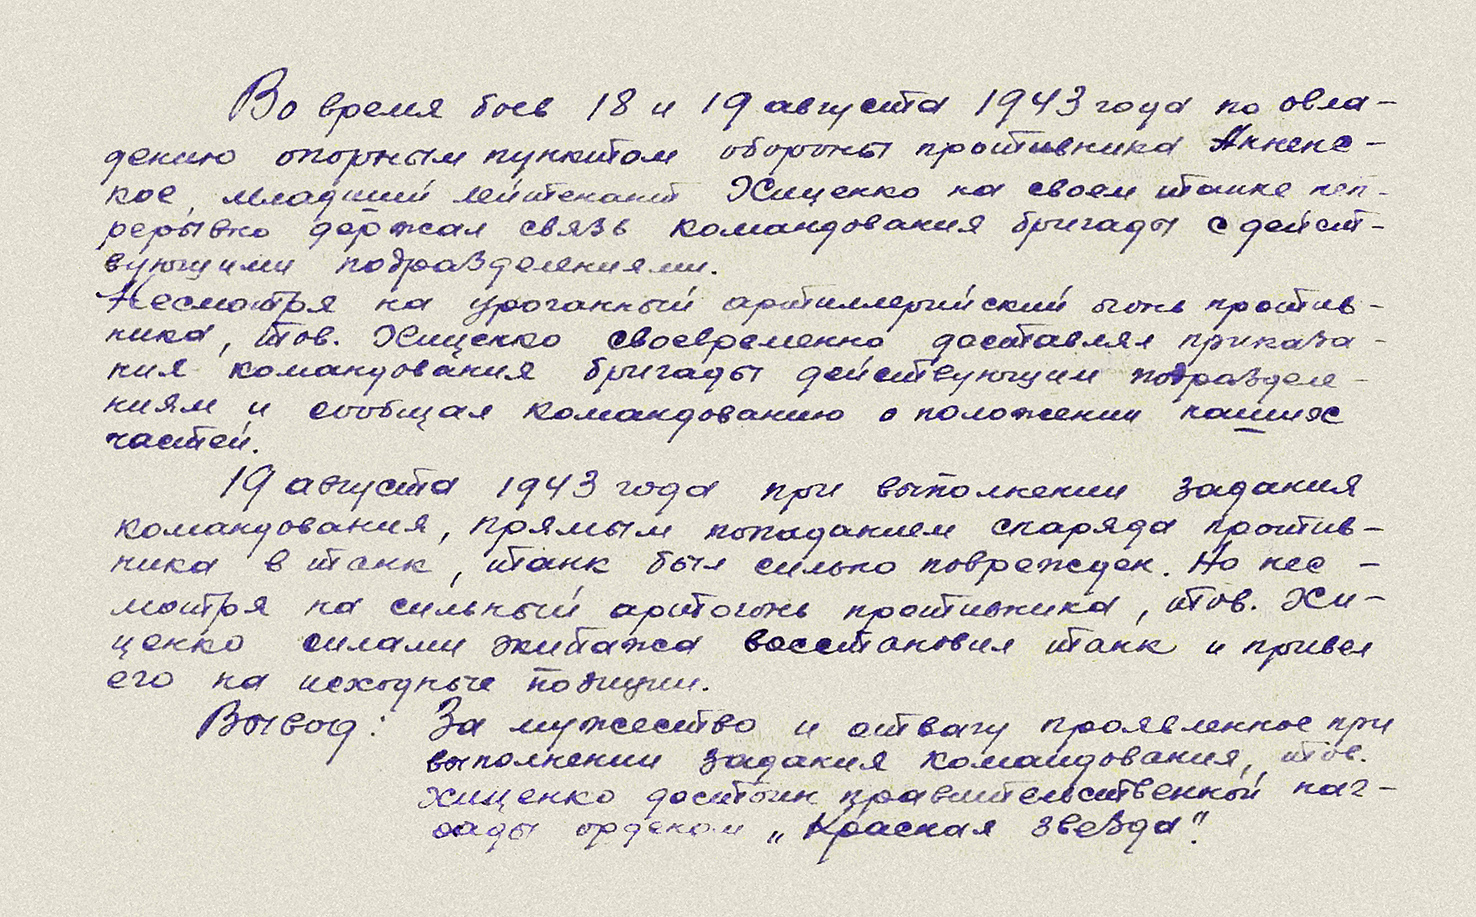 Во время боев 18 и 19 августа 1943 года по овла-
дению опорным пунктом обороны противника Анненс-
кое, младший лейтенант Хиценко на своем танке неп-
рерывно держал связь командования бригады с дейст-
вующими подразделениями.
Несмотря на ураганный артиллерийский огонь против-
ника, тов. Хиценко своевременно доставлял приказа-
ния командования бригады действующим подразделе-
ниям и сообщал командованию о положении наших
частей.
19 августа 1943 года при выполнении задания
командования, прямым попаданием снаряда против-
ника в танк, танк был сильно поврежден. Но нес-
мотря на сильный артогонь противника, тов. Хи-
ценко силами экипажа восстановил танк и привел
его на исходные позиции.
Вывод: За мужество и отвагу проявленное при
выполнении задания командования, тов.
Хиценко достоин правительственной наг-
рады орденом „Красная звезда".